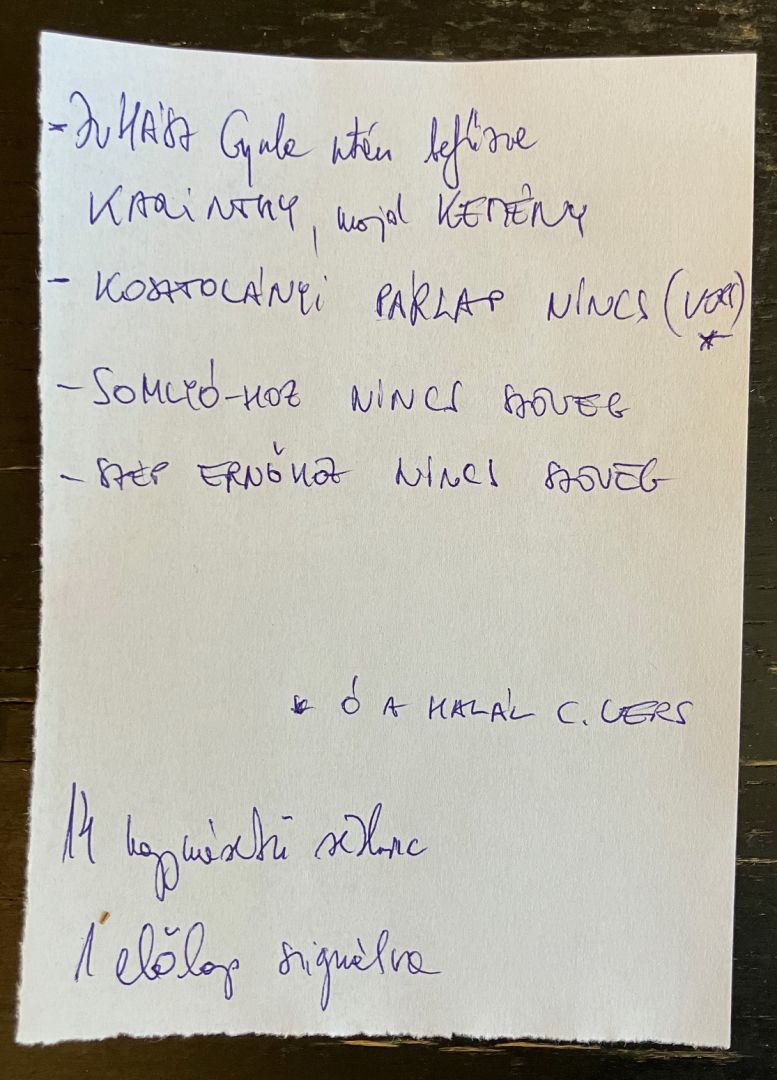 - JUHÁSZ Gyula után befűzve
KARINTHY, majd KEMÉNY
- KOSZTOLÁNYI PÁRLAP NINCS (VERS)
*
- SOMLYÓ-HOZ NINCS SZÖVEG
- SZÉP ERNŐHÖZ NINCS SZÖVEG
* Ó A HALÁL C. VERS
14 nagyméretű
1 előlap szignálva